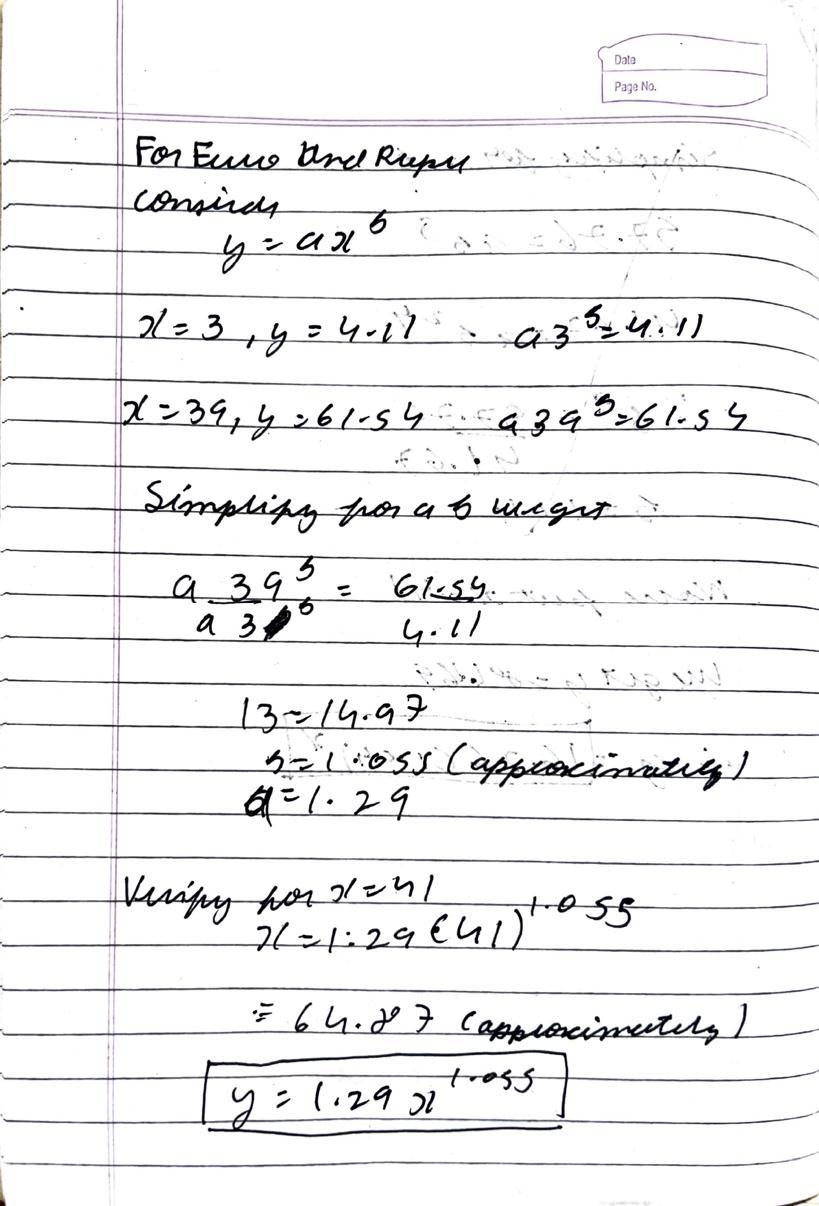 Date
Page No.
For Euro and Rupee
consider
y = ax^b
x = 3, y = 4.11 a3^b = 4.11
x = 39, y = 61.54 a39^b = 61.54
Simplify for a b we get
a 39^b = 61.54
a 3^b 4.11
13 = 14.97
b = 1.055 (approximately)
a = 1.29
Verify for x = 41
x = 1.29 (41)^1.055
= 64.87 (approximately)
y = 1.29 x^1.055